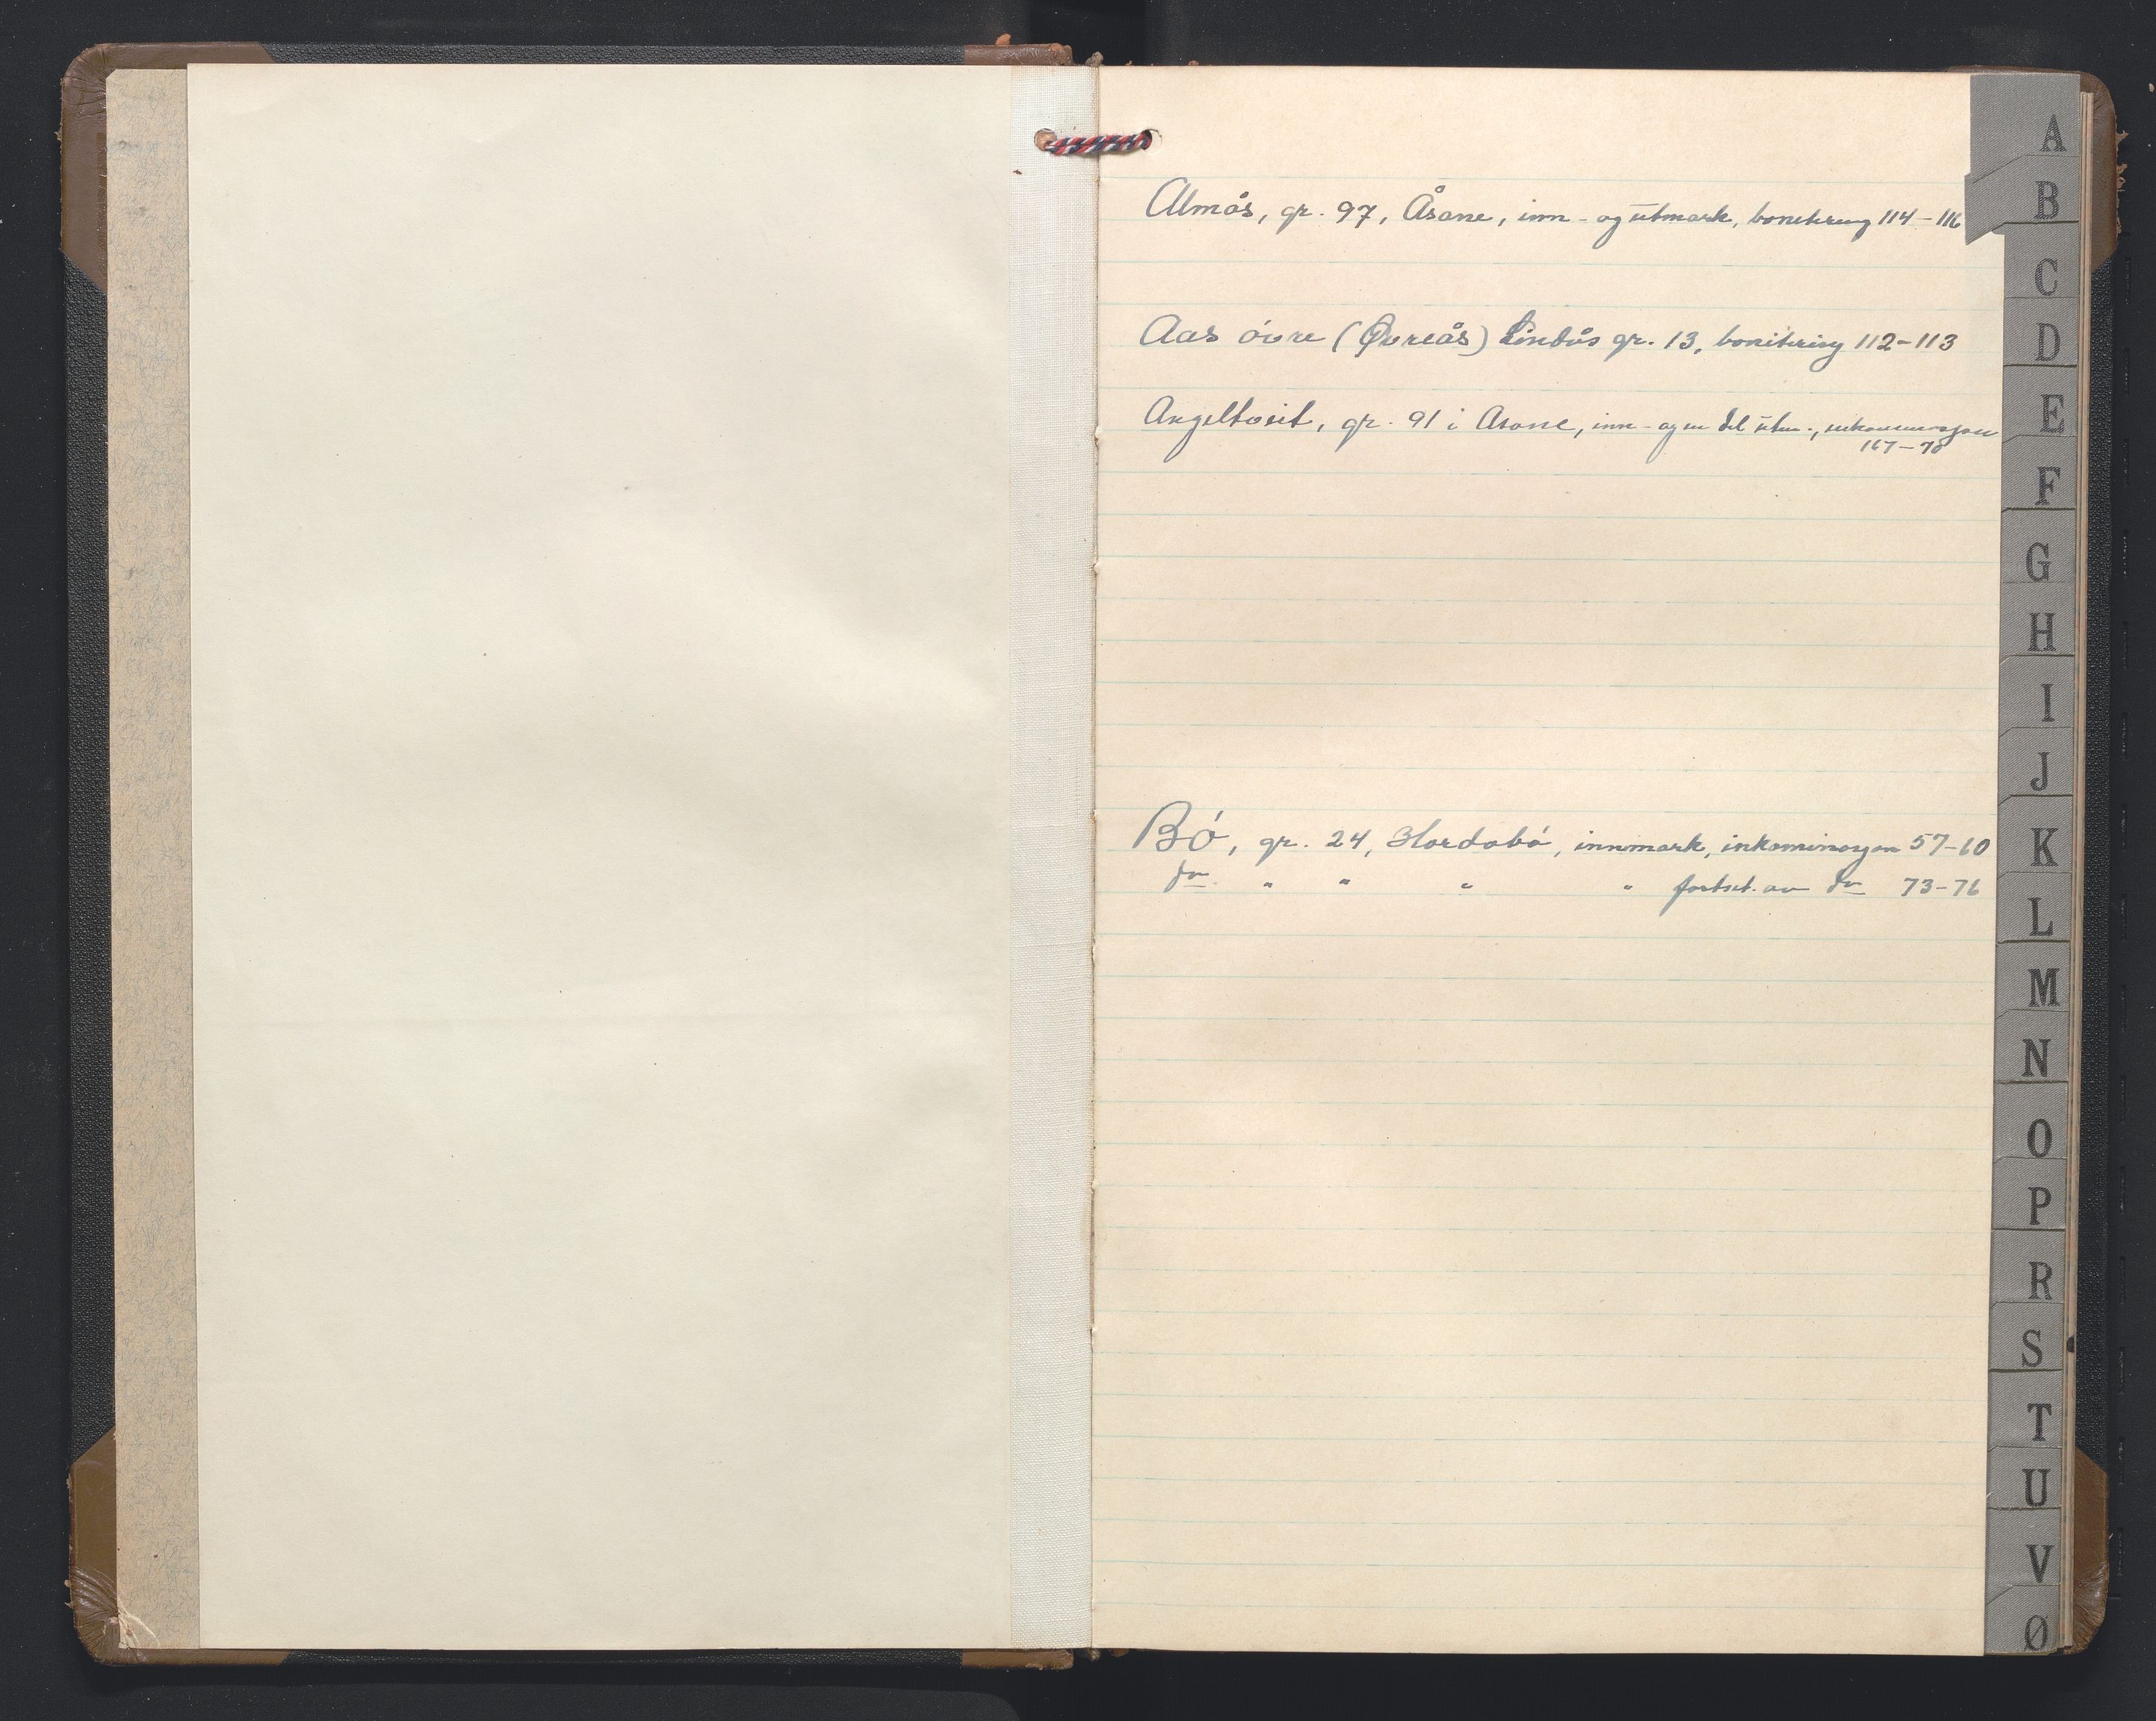 Almås, gr. 97, Åsane, inn- og utmark, bonitering 114-116
Aas óvre (Øvreås) Lindås gr. 13, bonitering 112-113
Angeltveit, gr. 91 i Åsane, inn- og en del utm., inkaminasjon
167-70
Bó, gr. 24, Hordabó, innmark, inkaminasjon 57-60
do " " " " fortset. av do 73-76
A
B
C
D
E
F
G
H
I
J
K
L
M
N
O
P
R
S
T
U
V
Ø